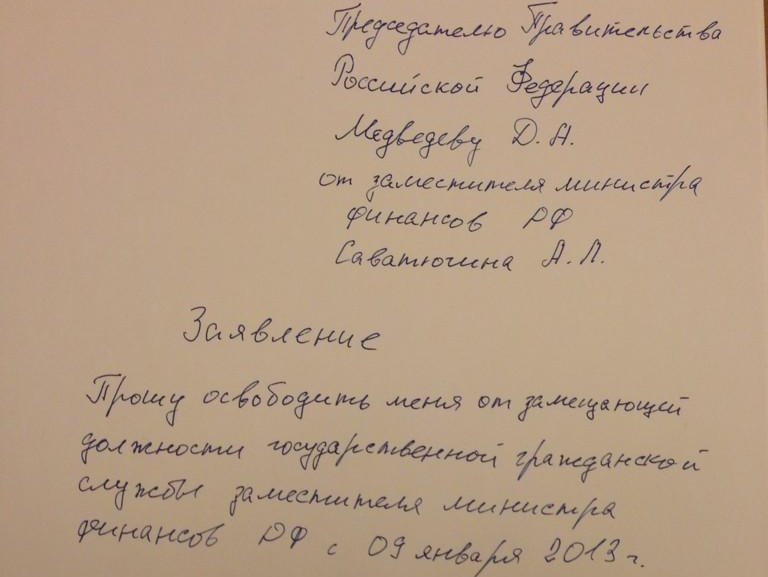 Председателю Правительства
Российской Федерации
Медведеву Д.А.
от заместителя министра
финансов РФ
Саватюгина А.Л.
Заявление
Прошу освободить меня от замещающей
должности государственной гражданской
службы заместителя министра
финансов РФ с 09 января 2013 г.